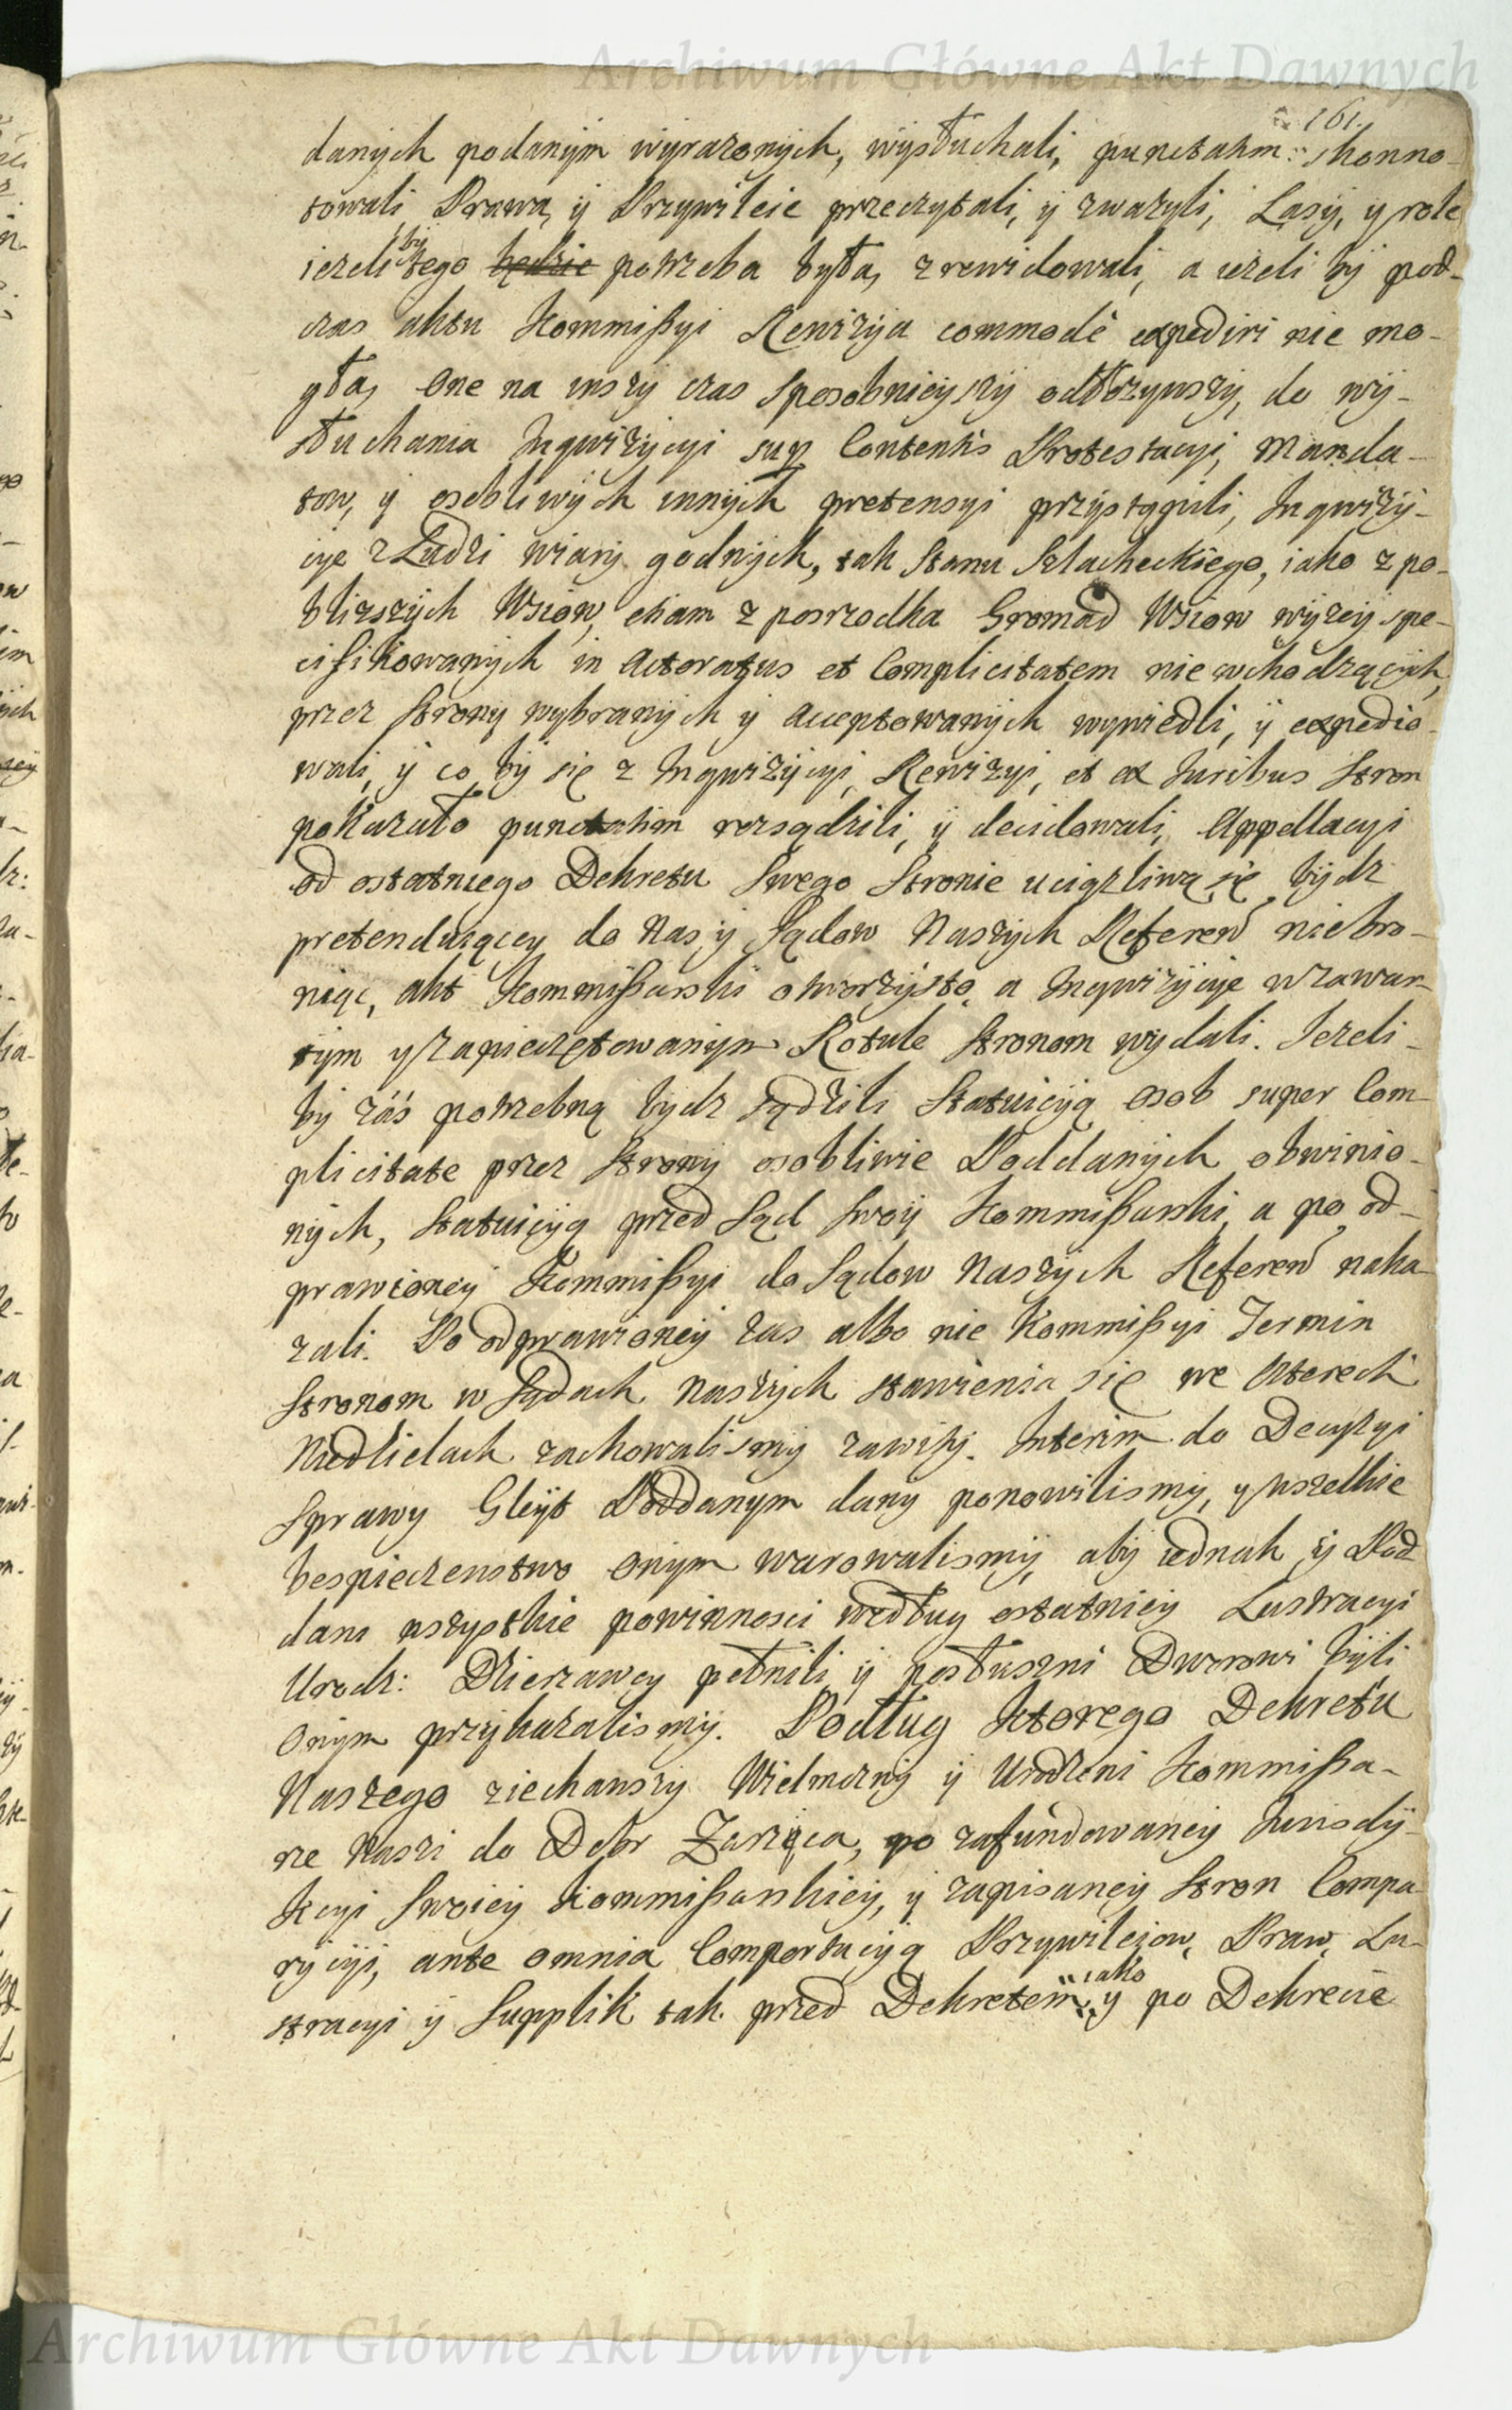 Archiwum Główne Akt Dawnych
161.
danych podanÿm wÿrazonÿch, wÿsłuchali, punctatim skonno-
towali Prawa, ÿ Przywileie przeczytali, ÿ zwazyli, Lasÿ, y role
iezeli bÿ tego będzie potrzeba była, zrewidowali, a iezeli bÿ pod-
czas aktu Kommißyi Rewizÿa commodè expediri nie mo-
gła, One na inszÿ czas Sposobnieÿszÿ odłozÿwszÿ, do wÿ-
słuchania Inqwizÿcyi sup Contentis Protestacyi, Manda-
tow, ÿ osobliwÿch innÿch pretensyi przÿstąpili, Inqwizÿ-
cye z Ludzi wiarÿ godnÿch, tak Stanu Szlacheckiego, iako z po-
blizszÿch Wsiow, etiam z posrzodka Gromad Wsiow wÿzeÿ spe-
cifikowanÿch in Actoratus et Complicitatem nie wchodzącÿch,
przez Strony wybranÿch ÿ Acceptowanÿch wywiedli, ÿ expedio-
wali, ÿ co bÿ się z Inqwizÿcyi, Rewizyi, et ex Juribus Stron
pokazało punctatim rozsądzili, ÿ decidowali, Appellacyi
od ostatniego Dekretu Swego Stronie uciązliwą się bÿdz
pretenduiącey do Nas ÿ Sądow Naszÿch Referen niebro-
niąc, akt Kommißarski otworzÿsto, a Inqwizÿcÿe w zawar-
tÿm y zapieczętowanÿm Rotule Stronom wydali. Jezeli-
bÿ záś potrzebną bydz sądzili Statuicÿą Osob super Com-
plicitate przez Stronÿ osobliwie Poddanÿch obwinio-
nÿch, Statuicÿą przed Sąd Swoÿ Kommißarski, a po od-
prawioneÿ Kommißyi do Sądow Naszÿch Referen naka-
zali. Po odprawioneÿ zas albo nie Kommißyi Termin
Stronom w Sądach Naszÿch stawienia się we Czterech
Niedzielach zachowalismÿ zawitÿ. Interim do Decyzyi
Sprawy Gleÿt Poddanym dany ponowilismÿ, y wszelkie
bespieczenstwo Onym warowalismÿ, abÿ iednak ÿ Pod-
dani wszystkie powinnosci według ostatnieÿ Lustracyi
Urodz: Dzierzawcy pełnili ÿ posłuszni Dworowi bÿli
Onÿm przÿkazalismÿ. Podług Ktorego Dekretu
Naszego ziechawszÿ Wielmoznÿ ÿ Urodzeni Kommißa-
rze Nasi do Dobr Zarzęca, po zafundowaneÿ Jurisdÿ-
kcyi Swoieÿ Kommißarskieÿ, ÿ zapisaneÿ Stron Compa-
rÿcÿi, ante omnia Comportacÿą Przywileiow, Praw, Lu-
stracyi ÿ Supplik tak przed Dekretem, iako ÿ po Dekrecie
Archiwum Główne Akt Dawnych